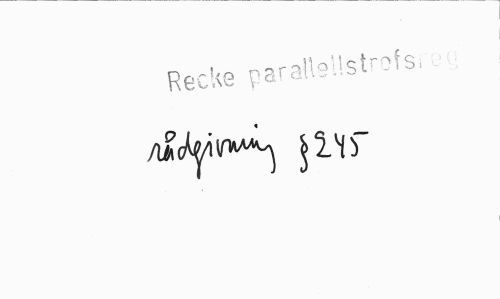 Recke parallellstrofsreg
rådgivning § 245